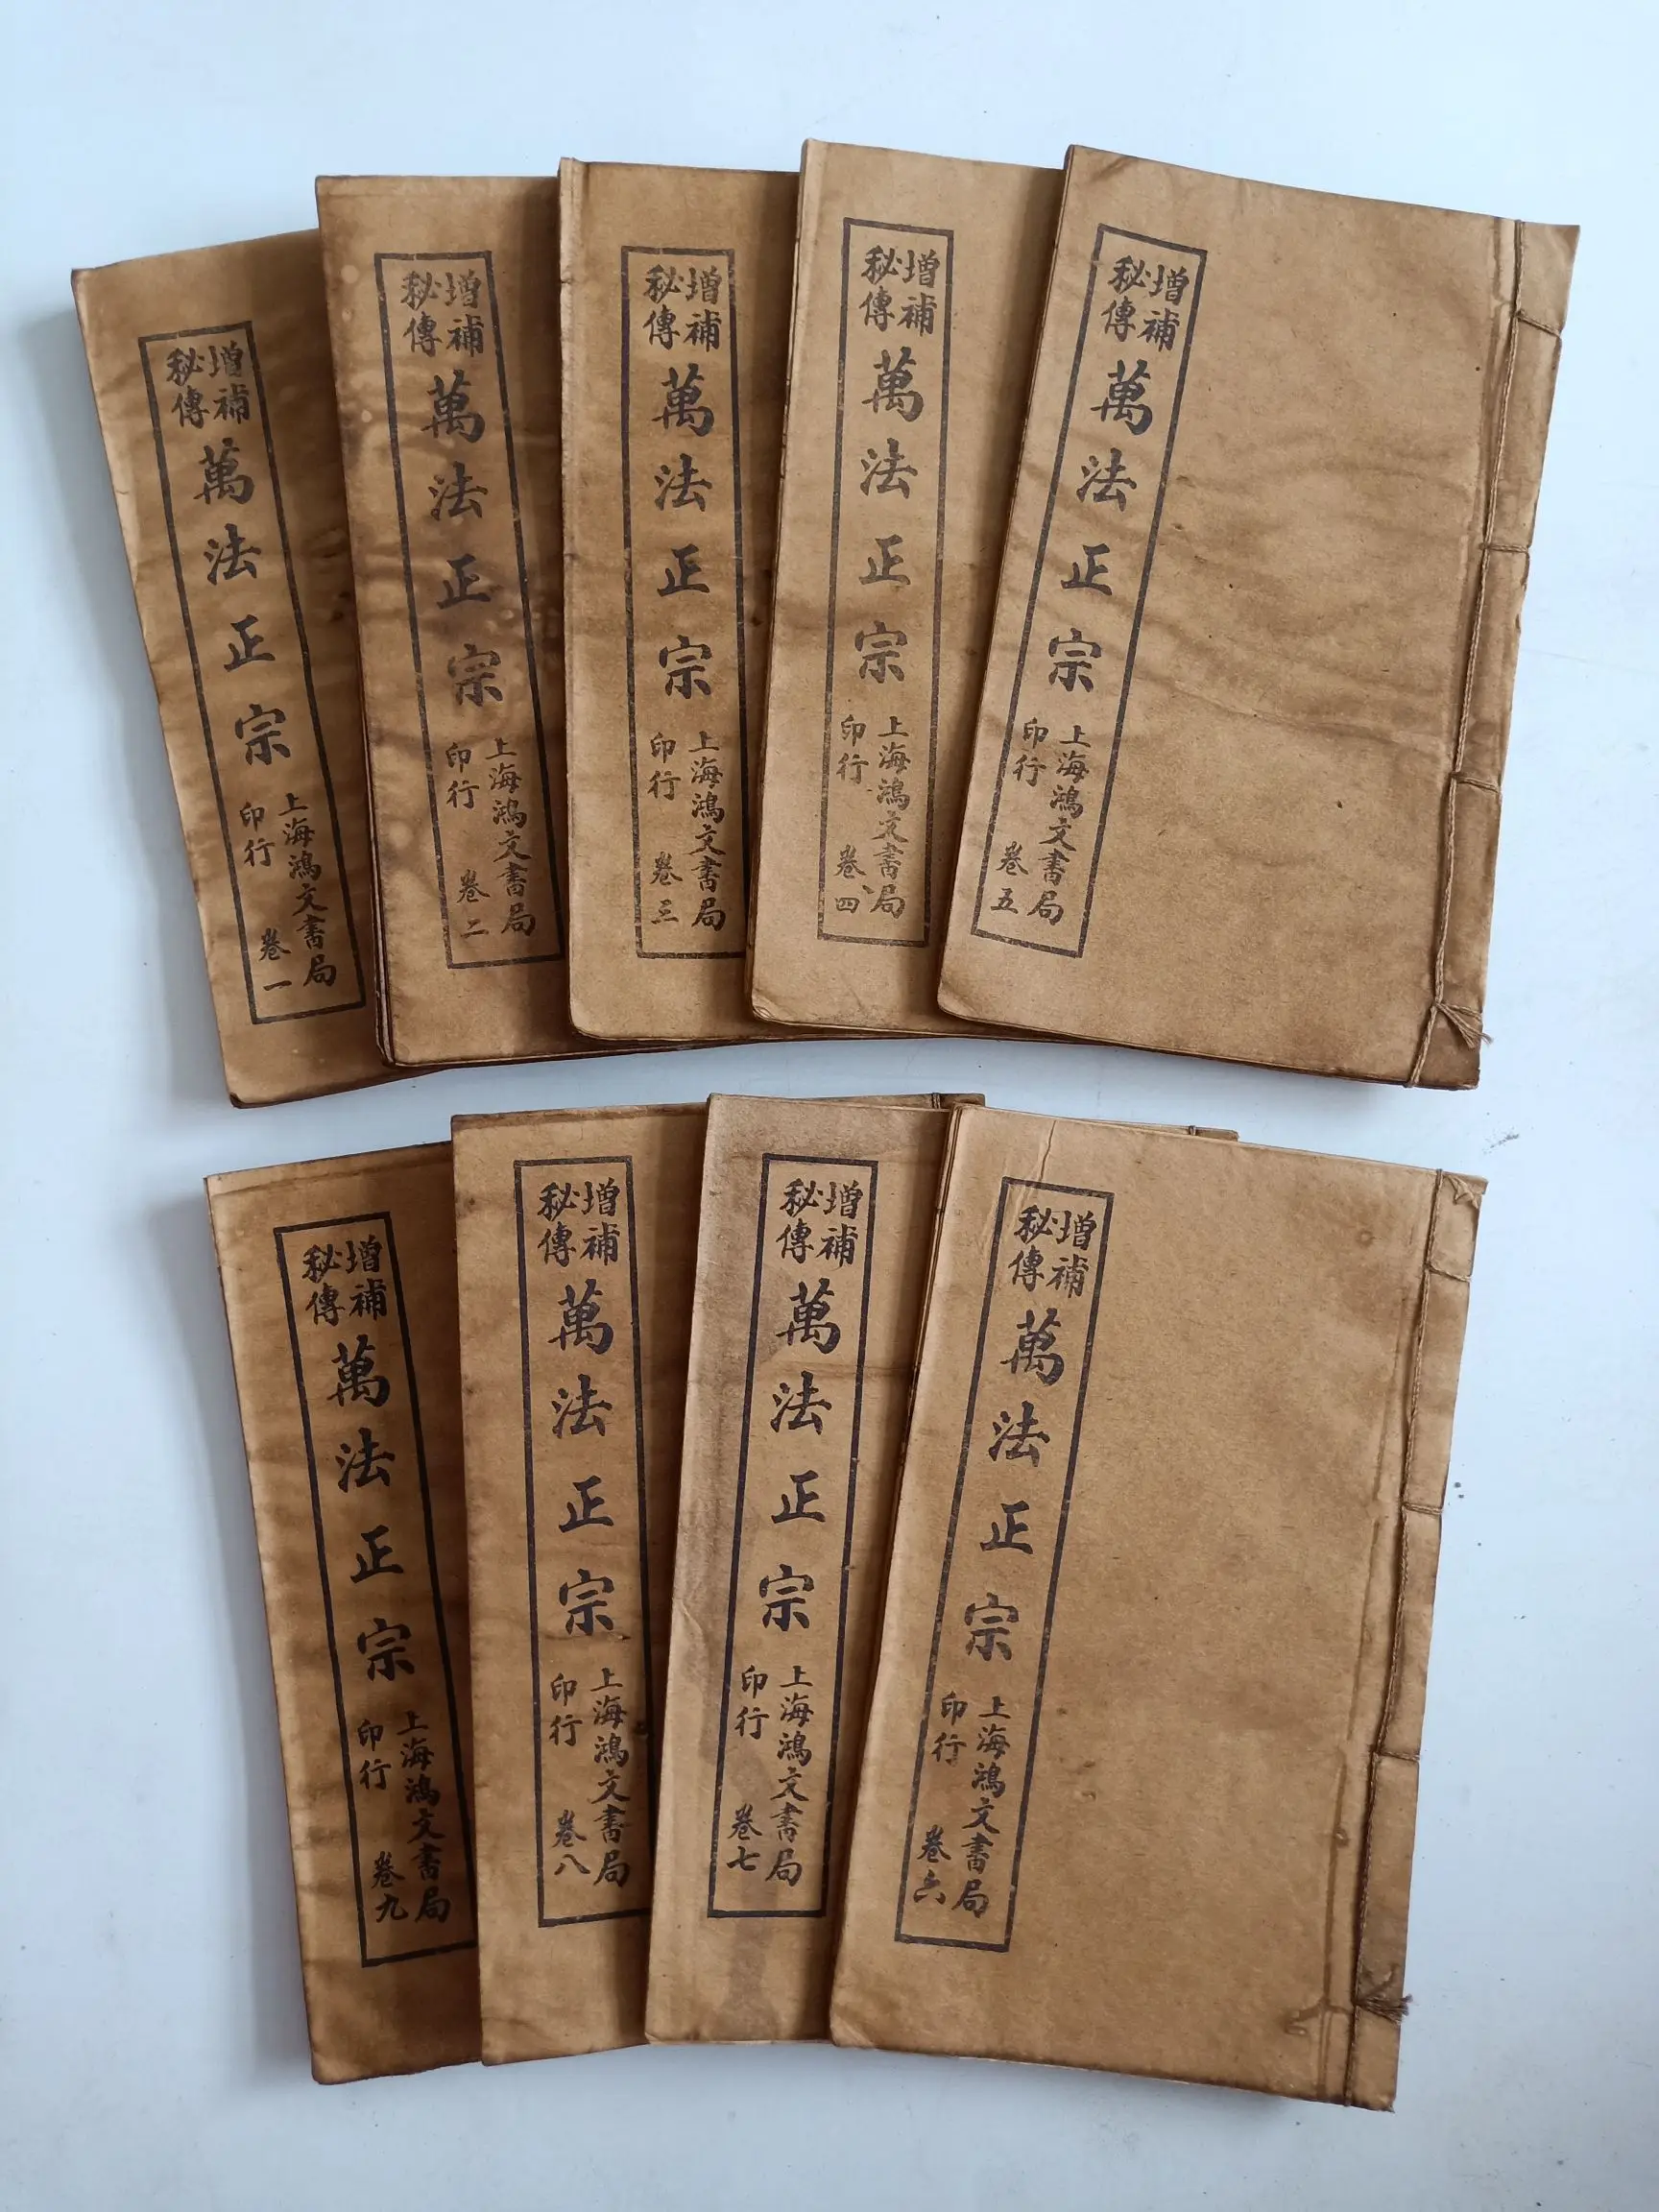 增補
秘傳
萬法正宗
上海鴻文書局
印行
卷一
增補
秘傳
萬法正宗
上海鴻文書局
印行
卷二
增補
秘傳
萬法正宗
上海鴻文書局
印行
卷三
增補
秘傳
萬法正宗
上海鴻文書局
印行
卷四
增補
秘傳
萬法正宗
上海鴻文書局
印行
卷五
增補
秘傳
萬法正宗
上海鴻文書局
印行
卷九
增補
秘傳
萬法正宗
上海鴻文書局
印行
卷八
增補
秘傳
萬法正宗
上海鴻文書局
印行
卷七
增補
秘傳
萬法正宗
上海鴻文書局
印行
卷六